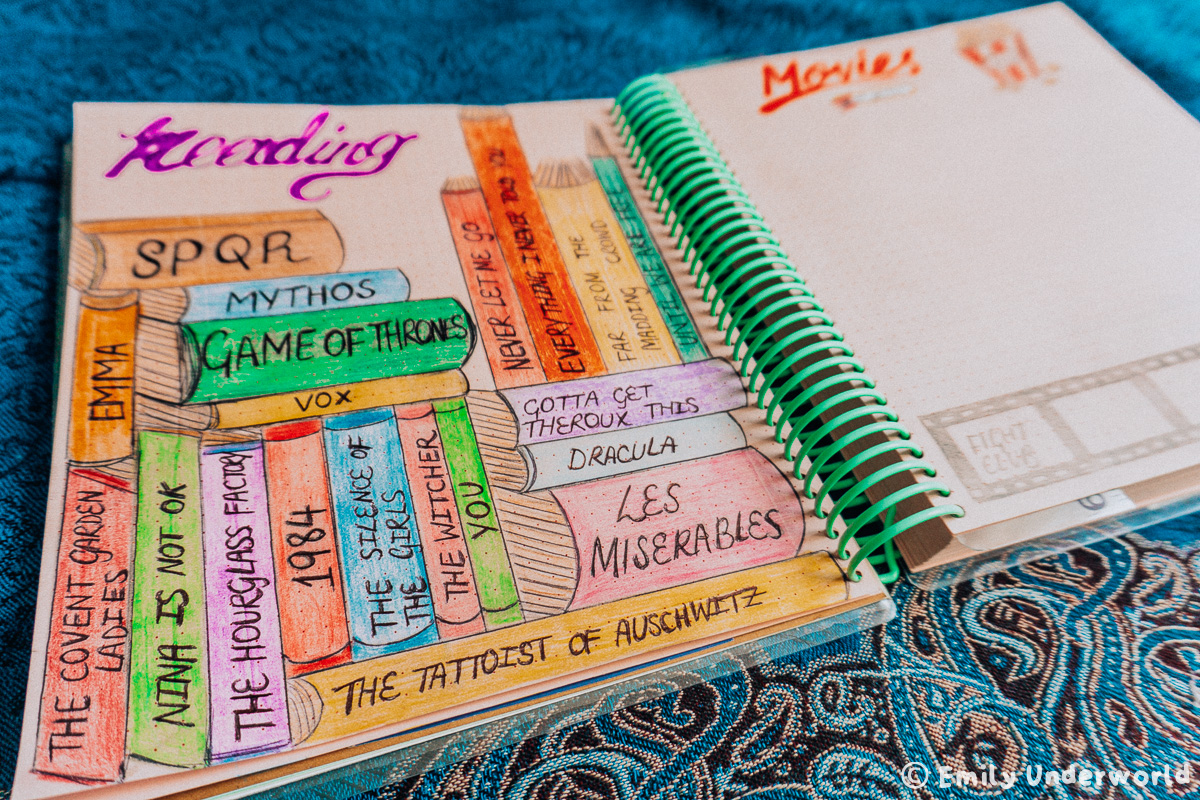 Reading
SPQR
MYTHOS
GAME OF THRONES
VOX
EMMA
THE COVENT GARDEN
LADIES
NINA IS NOT OK
THE HOURGLASS FACTORY
1984
THE SILENCE OF
THE GIRLS
THE WITCHER
YOU
NEVER LET ME GO
EVERYTHING I NEVER TOLD YOU
FAR FROM THE
MADDING CROWD
UNTIL WE ARE FREE
GOTTA GET
THEROUX THIS
DRACULA
LES
MISERABLES
THE TATTOIST OF AUSCHWITZ
Movies
FIGHT
CLUB
© Emily Underworld